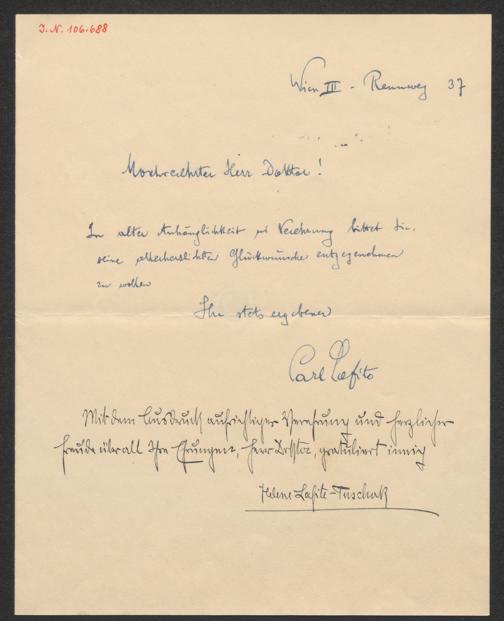 I. N. 106.688
Wien III - Rennweg 37
Hochverehrter Herr Doktor!
In alter Anhänglichkeit u Verehrung bittet Sie,
seine allerherzlichsten Glückwünsche entgegennehmen
zu wollen
Ihr stets ergebener
Carl Lafite
Mit dem Ausdruck aufrichtiger Verehrung und herzlicher
Freude über all Ihre Ehrungen, Herr Doktor, gratuliert innig
Helene Lafite-Tuschak